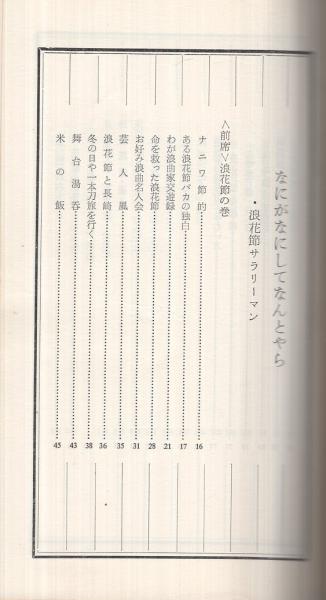 なにがなにしてなんとやら
・浪花節サラリーマン
＜前席＞浪花節の巻
ナニワ節的……16
ある浪花節バカの独白……17
わが浪曲家交遊録……21
命を救った浪花節……28
お好み浪曲名人会……31
芸人風……35
浪花節と長崎……36
冬の日や一本刀旅を行く……38
舞台湯呑……43
米の飯……45